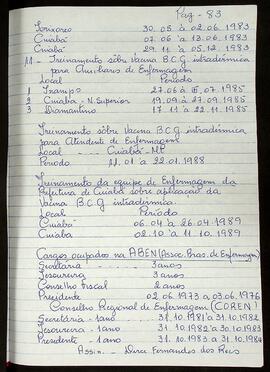 Pag - 83
30.05 à 02.06.1983
Cuiabá 07.06 à 13.06.1983
Cuiabá 29.11 à 05.12.1983
11 - Treinamento sôbre Vacina B.C.G. intradérmica
para Auxiliares de Enfermagem
Local Período
1 27.06 à 05.07.1985
2 Cuiabá - N. Superior 19.09 à 27.09.1985
3 Diamantino 17.11 à 22.11.1985
Treinamento sôbre Vacina B.C.G intradérmica
para Atendente de Enfermagem
Local Cuiabá MT
Período 11.01 à 22.01.1988
Treinamento da equipe de Enfermagem da
Prefeitura de Cuiabá sôbre aplicação da
Vacina B.C.G intradérmica.
Local Período
Cuiabá 06.04 à 26.04.1989
Cuiabá 02.10 à 11.10.1989
Cargos ocupados na ABEN (Assoc. Bras. de Enfermagem)
Secretária - 3 anos
Tesoureira 3 anos
Conselho Fiscal 2 anos
Presidente 02.06.1973 a 03.06.1976
Conselho Regional de Enfermagem (COREN)
Secretária - 1 ano 31.10.1981 à 31.10.1982
Tesoureira - 1 ano 31.10.1982 à 30.10.1983
Presidente - 1 ano 31.10.1983 à 31.10.1984
Assin. Dirce Fernandes dos Reis